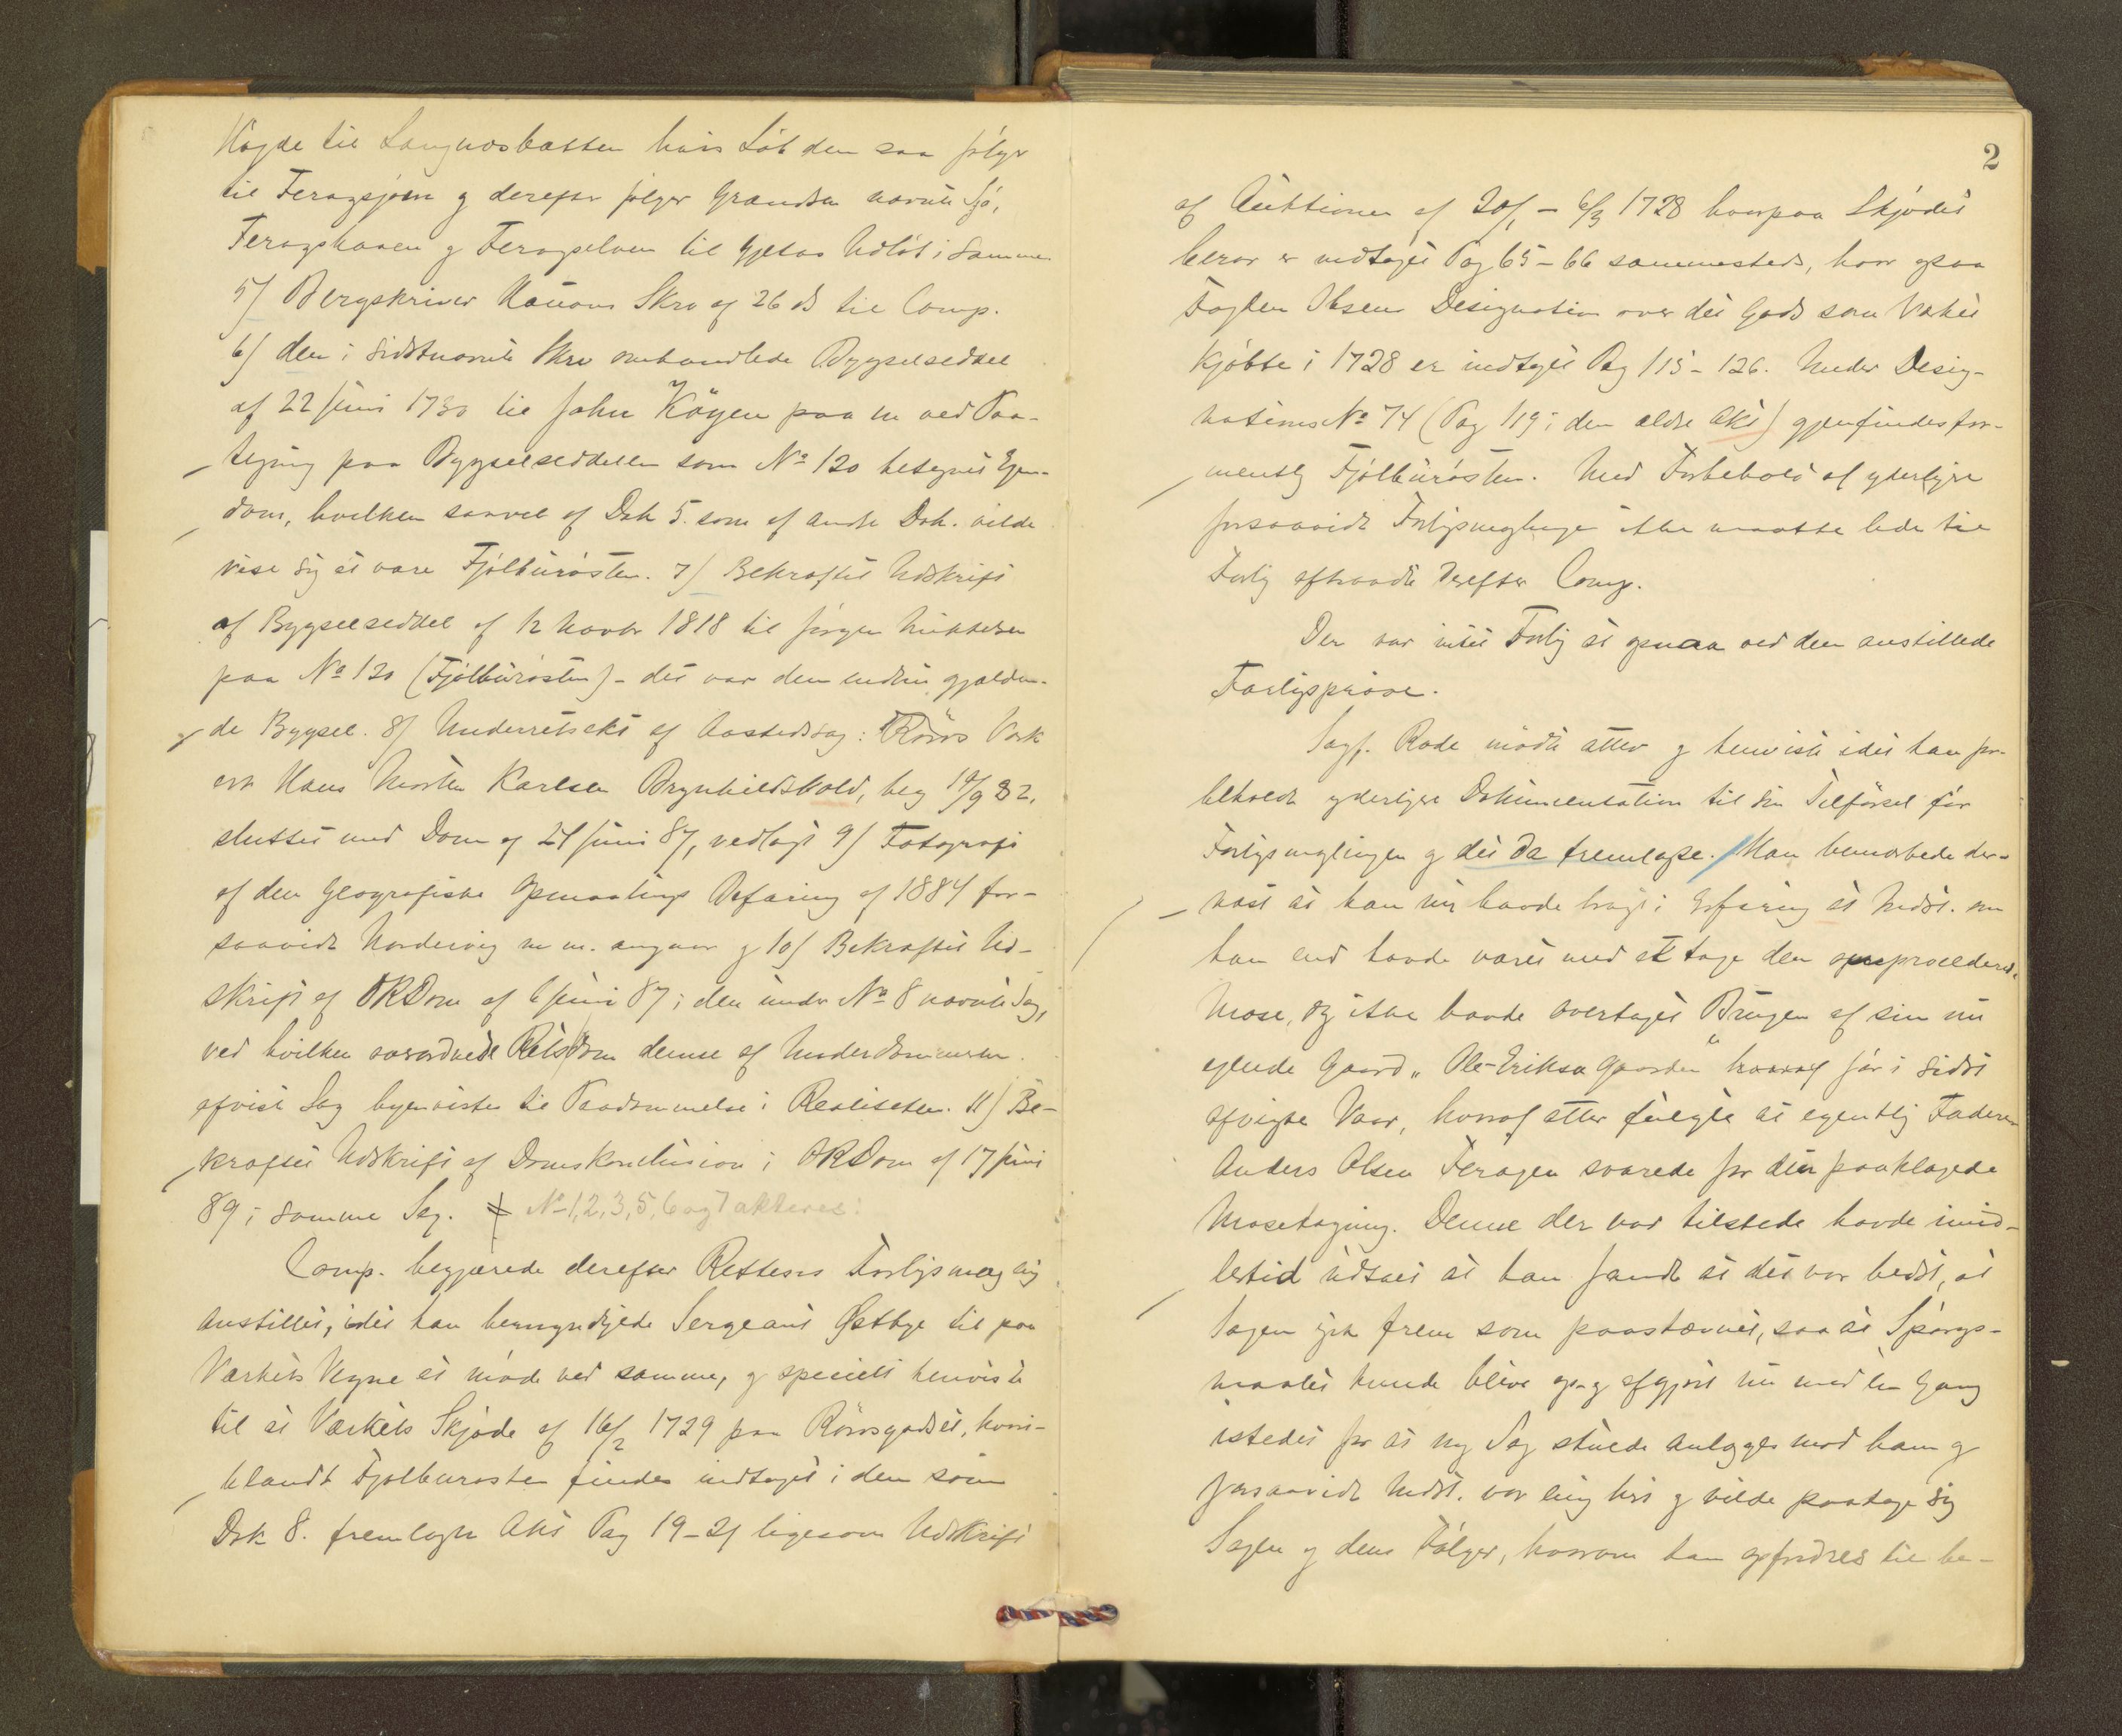 Høyde til Langnæsbækken hvis Løb den saa følger
til Feragsjøen og derefter følger Grændsen nævnte Sjø,
Feragshaaen og Feragselven til Gjetas Udløb i samme
5) Bergskriver Hauans Skrv af 26 ds til Comp.
6) den i sidstnævnte Skrv omhandlede Bygselseddel
af 22 Juni 1730 til John Köyen paa en ved Paa-
tegning paa Bygselseddelen som No 120 betegnet Ejen-
dom, hvilken saavel af Dok 5. som af andre Dok. vilde
vise sig at være Fjølburøsten. 7) Bekræftet Udskrift
af Bygselseddel af 12 Novbr 1818 til Jørgen Mikkelsen
paa No 120 (Fjølburøsten) - det var den endnu gjælden-
de Bygsel. 8) Underretsakt af Aastedssag: Røros Værk
ctr Hans Morten Karlsen Brynhildsvold, beg 19/9 82,
sluttet med Dom af 24 Juni 87, vedlagt 9) Fotografi
af den Geografiske Opmaalings Befaring af 1884 for-
saavidt Nordervig m m. angaar og 10) Bekræftet Ud-
skrift af ORDom af 6 Juni 87 i den under No 8 nævnte Sag,
ved hvilken overordnede Retsdom denne af Underdommeren
afviste Sag hjemvistes til Paadømmelse i Realiteten. 11) Be-
kræftet Udskrift af Domskonclusion i ORDom af 17 Juni
89 i samme Sag. No 1, 2, 3, 5, 6 og 7 akteres:
Comp. begjærede derefter Rettens Forligsmægling
anstillet, idet han bemyndigede Sergeant Østbye til paa
Værkets Vegne at møde ved samme, og specielt henviste
til at Værkets Skjøde af 16/2 1729 paa Rørosgodset, hvori-
blandt Fjølburøsten findes indtaget i den som
Dok 8. fremlagte Akt Pag 19-21 ligesom Udskrift
2
af Auktionen af 20/1 - 6/3 1728 hvorpaa Skjødet
beror er indtaget Pag 65-66 sammesteds, hvor ogsaa
Fogden Olsens Designation over det Gods som Værket
kjøbte i 1728 er indtaget Pag 115-126. Under Desig-
nations No 74 (Pag 119 i den ældre Akt) gjenfindes for-
mentlig Fjølburøsten. Med Forbehold af yderligere
forsaavidt Forligsmæglingen ikke maatte lede til
Forlig aftraadte derefter Comp.
Der var intet Forlig at opnaa ved den anstillede
Forligsprøve.
Sagf. Rode mødte atter og henviste idet han for-
beholdt yderligere Dokumentation til sin Tilførsel før
Forligsmæglingen og det da fremlagte. Han bemærkede der-
næst at han nu havde bragt i Erfaring at Indst. om
han end havde været med at tage den omprocederede
Mose, dog ikke havde overtaget Brugen af sin nu
eiende Gaard „Ole-Eriksa Gaarden“ hvoraf før i sidst
afvigte Vaar, hvoraf atter fulgte at egentlig Faderen
Anders Olsen Feragen svarede for den paaklagede
Mosetagning. Denne der var tilstede havde imid-
lertid udtalt at han fandt at det var bedst, at
Sagen gik frem som paastævnet, saa at Spørgs-
maalet kunde blive op- og afgjort nu med en Gang
istedet for at ny Sag skulde anlægges mod ham og
forsaavidt Indst. var enig heri og vilde paatage sig
Sagen og dens Følger, hvorom han opfordres til be-